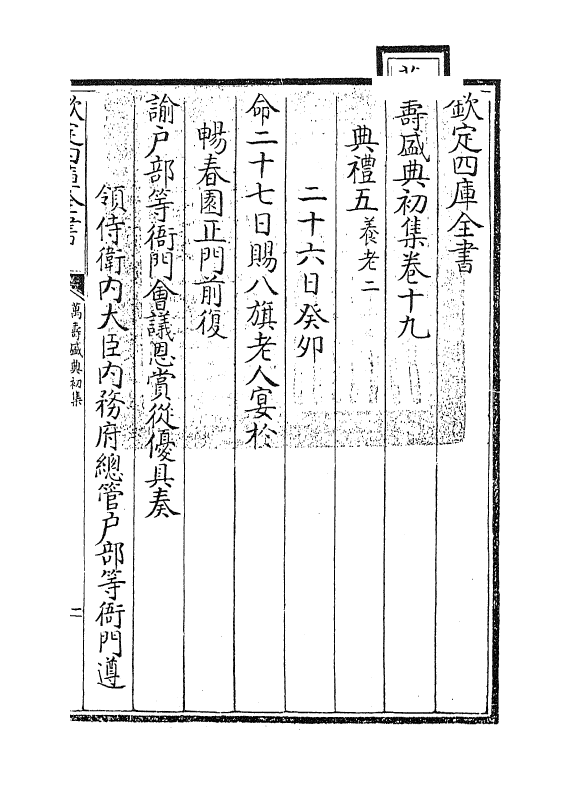 欽定四庫全書
壽盛典初集卷十九
典禮五養老二
二十六日癸卯
命二十七日賜八旗老人宴於
暢春園正門前復
諭户部等衙門會議恩賞從優具奏
領侍衛内大臣内務府總管户部等衙門遵
萬壽盛典初集